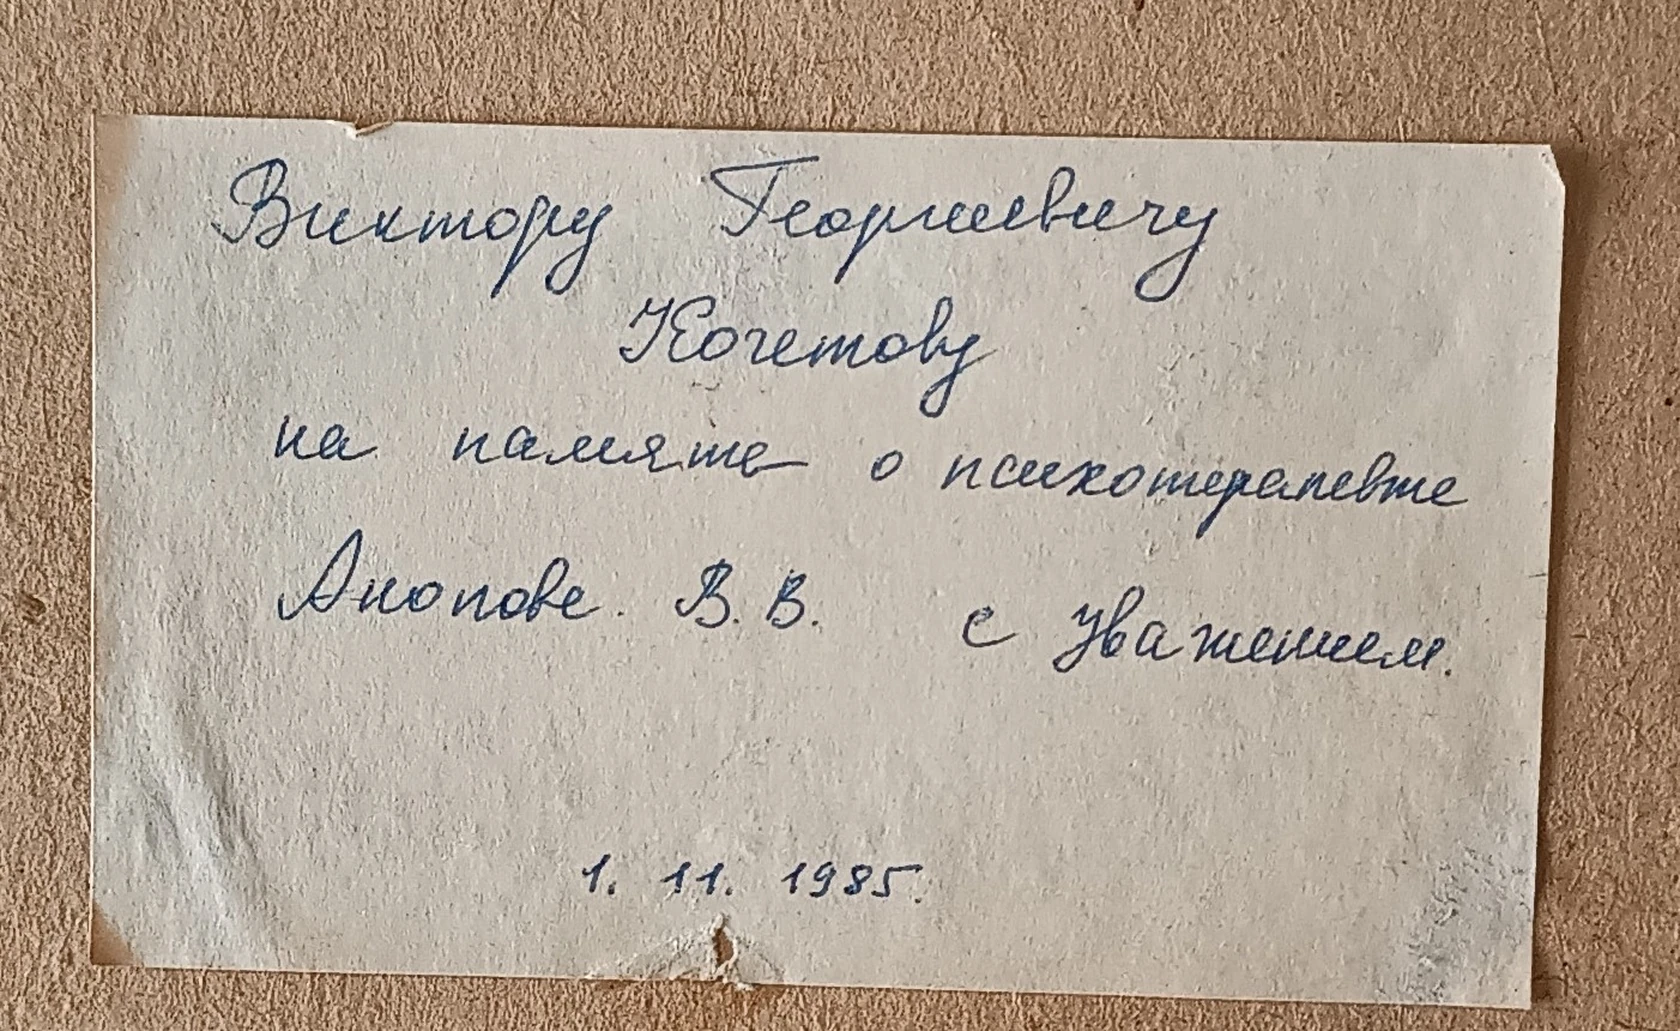 Виктору Георгиевичу
Кочетову
на память о психотерапевте
Анопове В. В. с уважением.
1. 11. 1985.